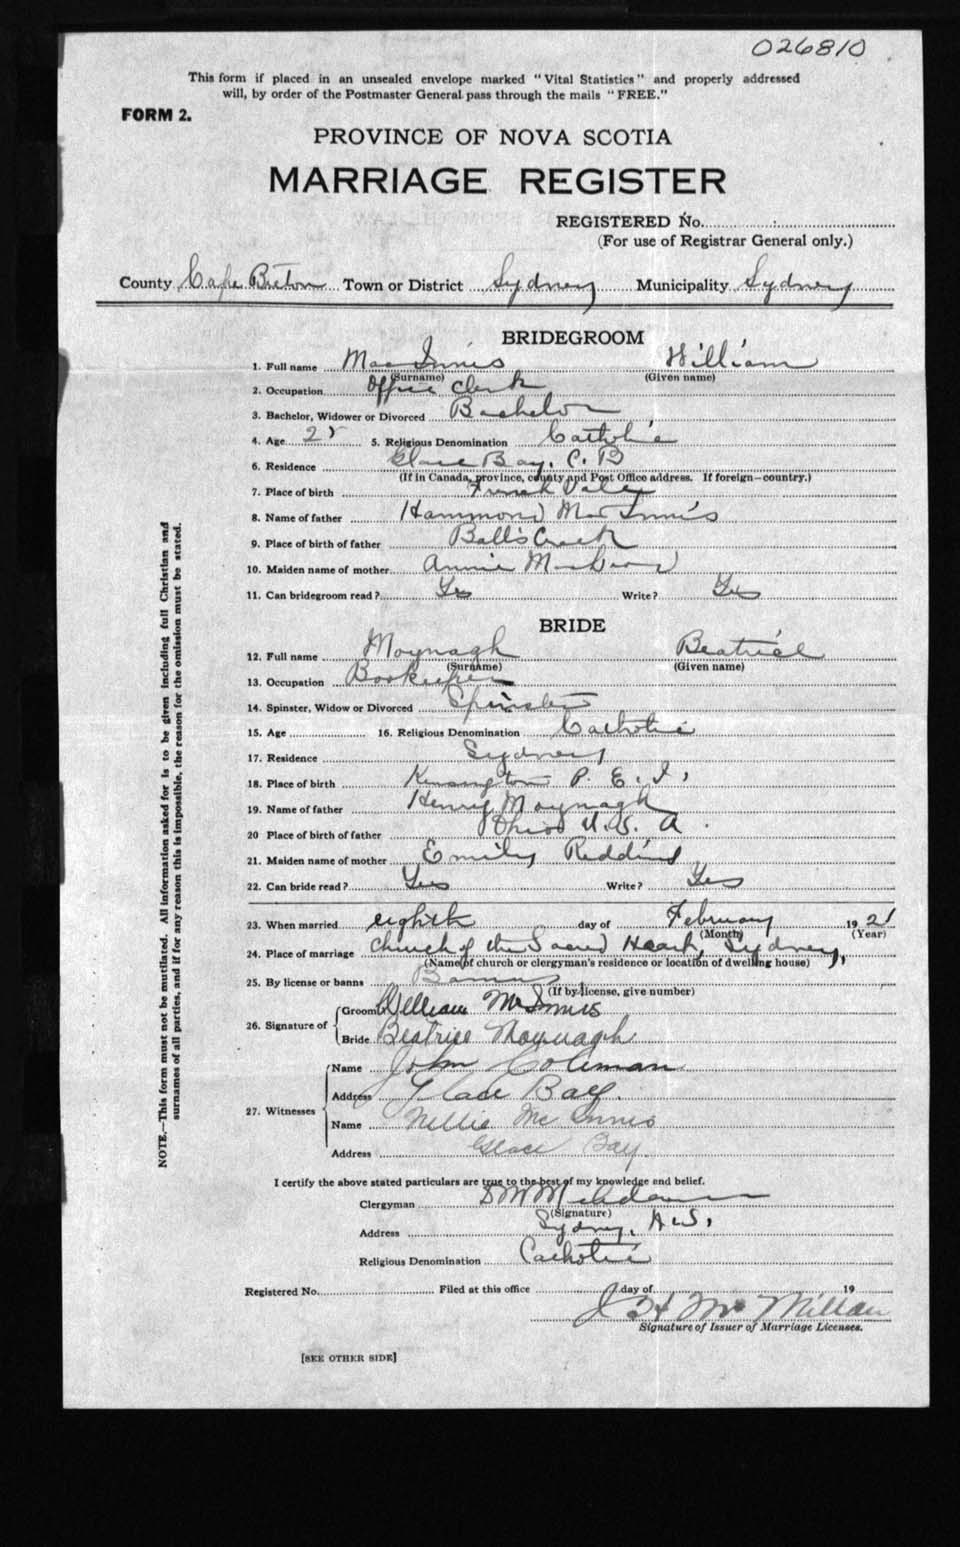 026810
This form if placed in an unsealed envelope marked "Vital Statistics" and properly addressed
will, by order of the Postmaster General pass through the mails "FREE."
FORM 2.
PROVINCE OF NOVA SCOTIA
MARRIAGE REGISTER
REGISTERED No.
(For use of Registrar General only.)
County Cape Breton Town or District Sydney Municipality Sydney
BRIDEGROOM
1. Full name MacInnis William
(Surname) (Given name)
2. Occupation Office Clerk
3. Bachelor, Widower or Divorced Bachelor
4. Age 5. Religious Denomination Catholic
6. Residence Glace Bay, C. B
(If in Canada, province, county and Post Office address. If foreign—country.)
7. Place of birth French Vale
8. Name of father Hammond MacInnis
9. Place of birth of father Balls Creek
10. Maiden name of mother Annie
11. Can bridegroom read? Yes Write? Yes
BRIDE
12. Full name Moynagh Beatrice
(Surname) (Given name)
13. Occupation Bookeeper
14. Spinster, Widow or Divorced Spinster
15. Age 16. Religious Denomination Catholic
17. Residence Sydney
18. Place of birth Kensington P. E. I.
19. Name of father Henry Moynagh
20 Place of birth of father Ohio U. S. A.
21. Maiden name of mother Emily
22. Can bride read? Yes Write? Yes
23. When married eighth day of February 1921
(Month) (Year)
24. Place of marriage Church of the Sacred Heart, Sydney,
(Name of church or clergyman's residence or location of dwelling house)
25. By license or banns Banns
(If by license, give number)
26. Signature of Groom William McInnis
Bride Beatrice Moynagh
27. Witnesses Name John Coleman
Address Glace Bay.
Name Nellie McInnis
Address Glace Bay.
I certify the above stated particulars are true to the best of my knowledge and belief.
Clergyman
(Signature)
Address Sydney, N.S.
Religious Denomination Catholic
Registered No. Filed at this office day of 19
McMillan
Signature of Issuer of Marriage Licenses.
[SEE OTHER SIDE]
NOTE.—This form must not be mutilated. All information asked for is to be given including full Christian and
surnames of all parties, and if for any reason this is impossible, the reason for the omission must be stated.